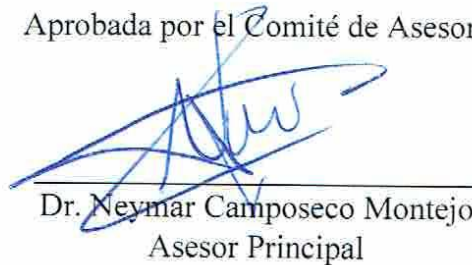 Aprobada por el Comité de Asesor
Dr. Neymar Camposeco Montejo
Asesor Principal